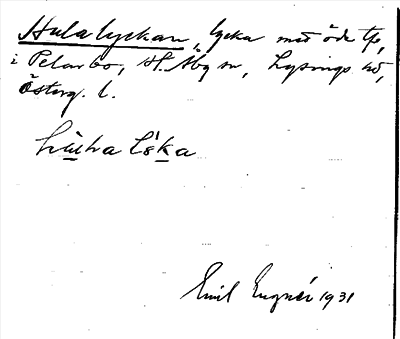 Hulalyckan, lycka med öde tp,
i Pelarbo, V. Åby sn, Lysings hd,
Österg. l.
hù̱lva lö́ḵa
Emil Engnér 1931